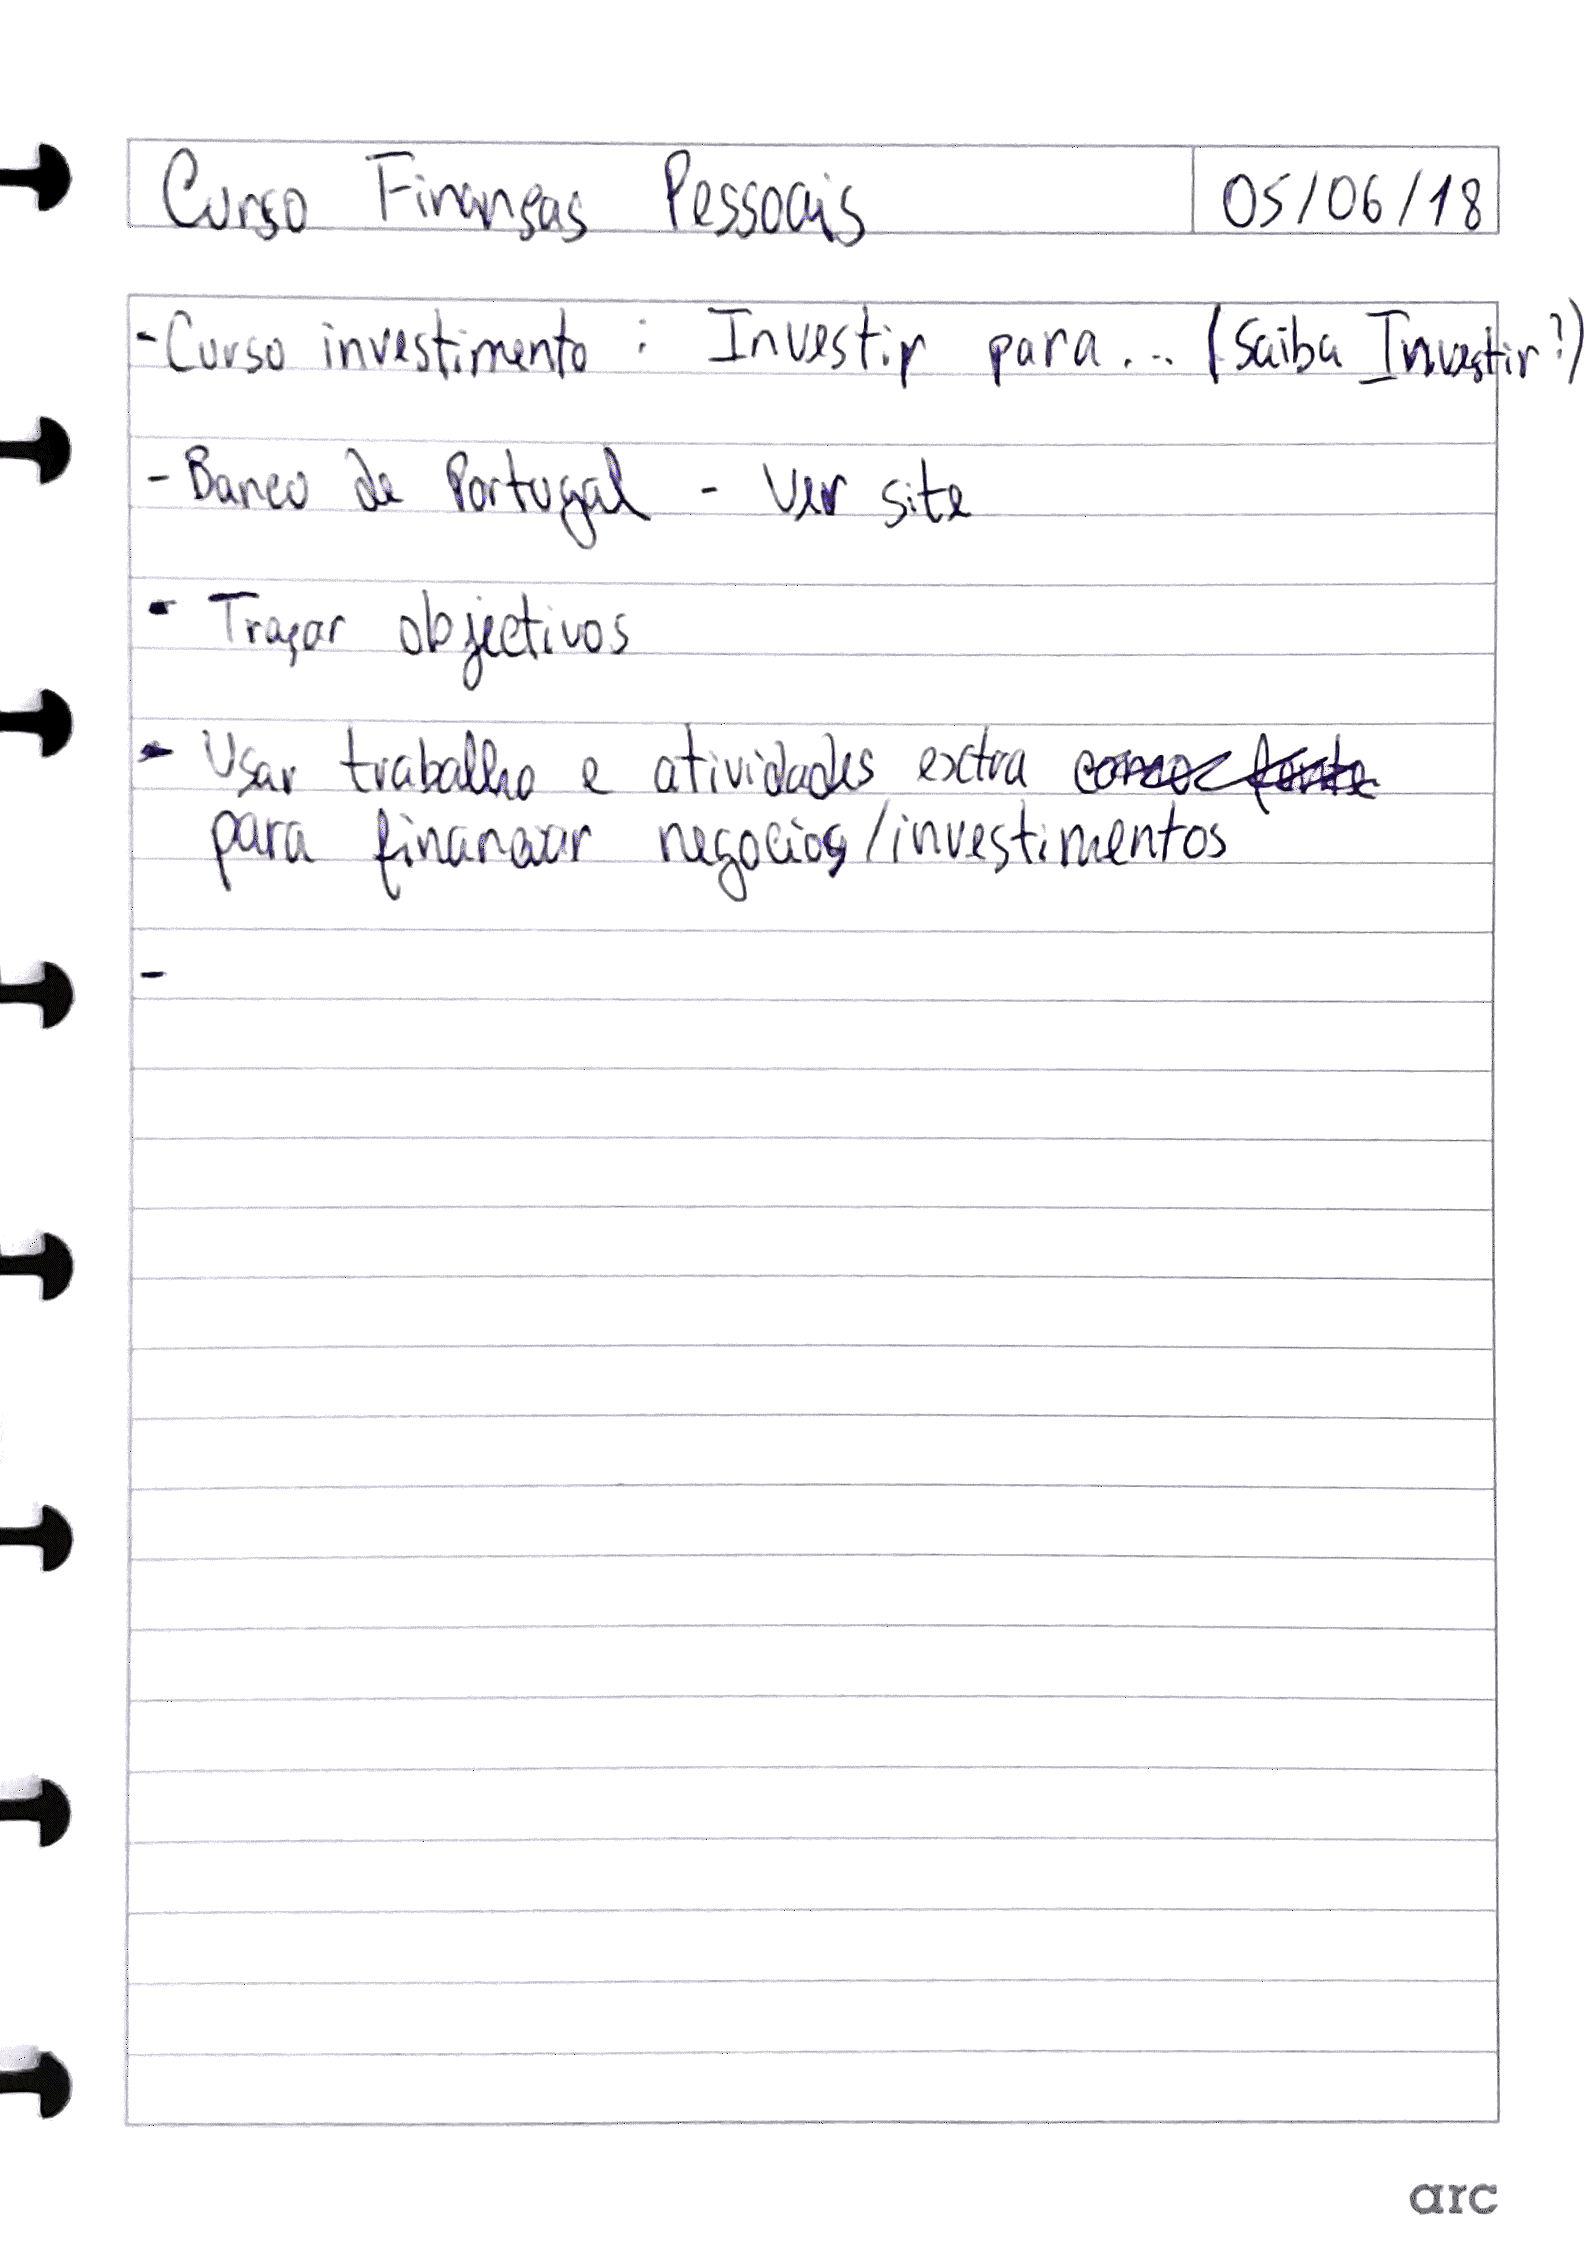 Curso Finanças Pessoais 05/06/18
- Curso investimento : Investir para... (Saiba Investir?)
- Banco de Portugal - Ver site
- Traçar objectivos
- Usar trabalho e atividades extra ~~como fonte~~
para financiar negocios/investimentos
-
arc